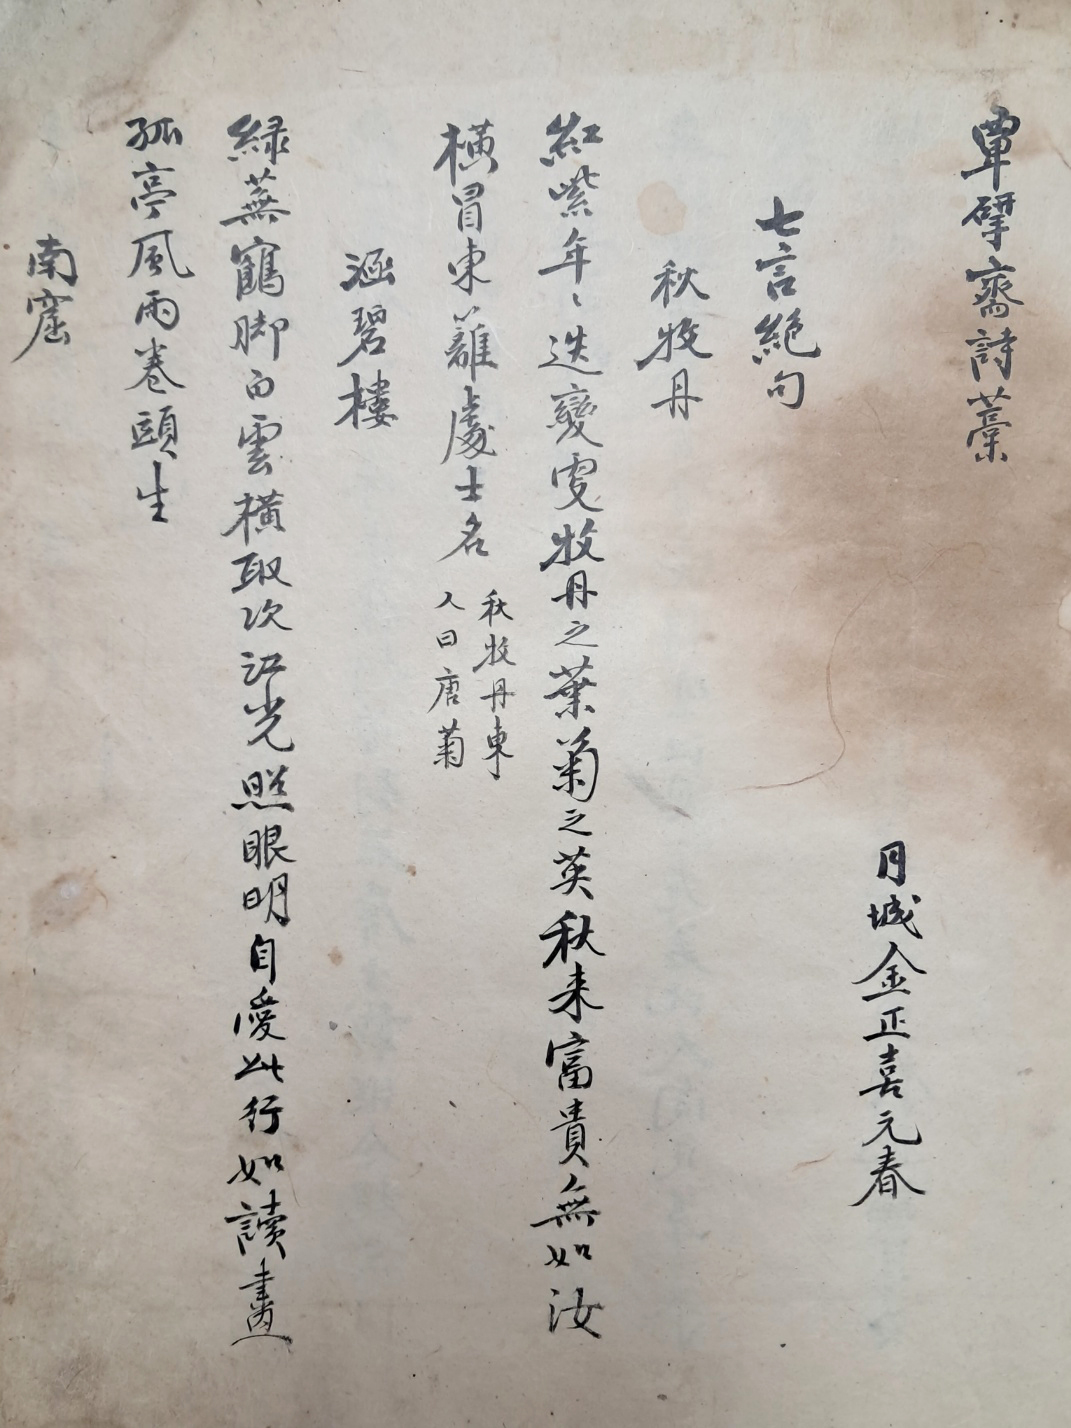 覃揅齋詩藁
月城金正喜元春
七言絶句
秋牧丹
紅紫年〻迭變更牧丹之葉菊之英秋來富貴無如汝
橫冒東籬處士名
秋牧丹東
人曰唐菊
涵碧樓
緑蕪鶴脚白雲橫取次江光照眼明自愛此行如讀畫
孤亭風雨卷頭生
南窟